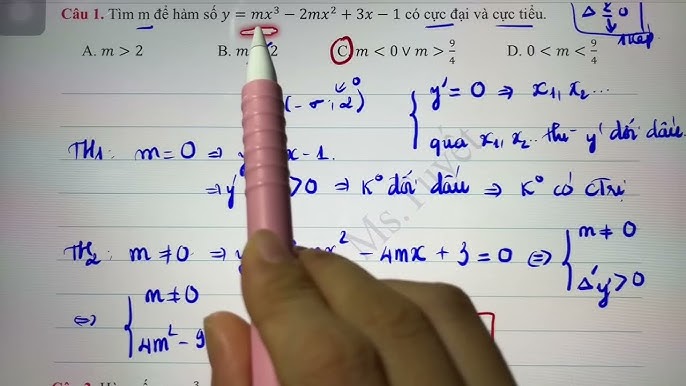 Câu 1. Tìm m để hàm số y = mx³ − 2mx² + 3x − 1 có cực đại và cực tiểu.
A. m > 2 B. m 2 C. m < 0 ∨ m > 9/4 D. 0 < m < 9/4
y' = 0 ⇒ x₁, x₂ ...
qua x₁, x₂ .. thì y' đổi dấu
TH1: m = 0 ⇒ x − 1.
⇒ y' > 0 ⇒ K° đổi dấu ⇒ K° có CTrị
TH2: m ≠ 0 ⇒ mx² − 4mx + 3 = 0 ⇔ { m ≠ 0
Δ'y' > 0
⇔ { m ≠ 0
4m² − 9
Ms.Tuyết